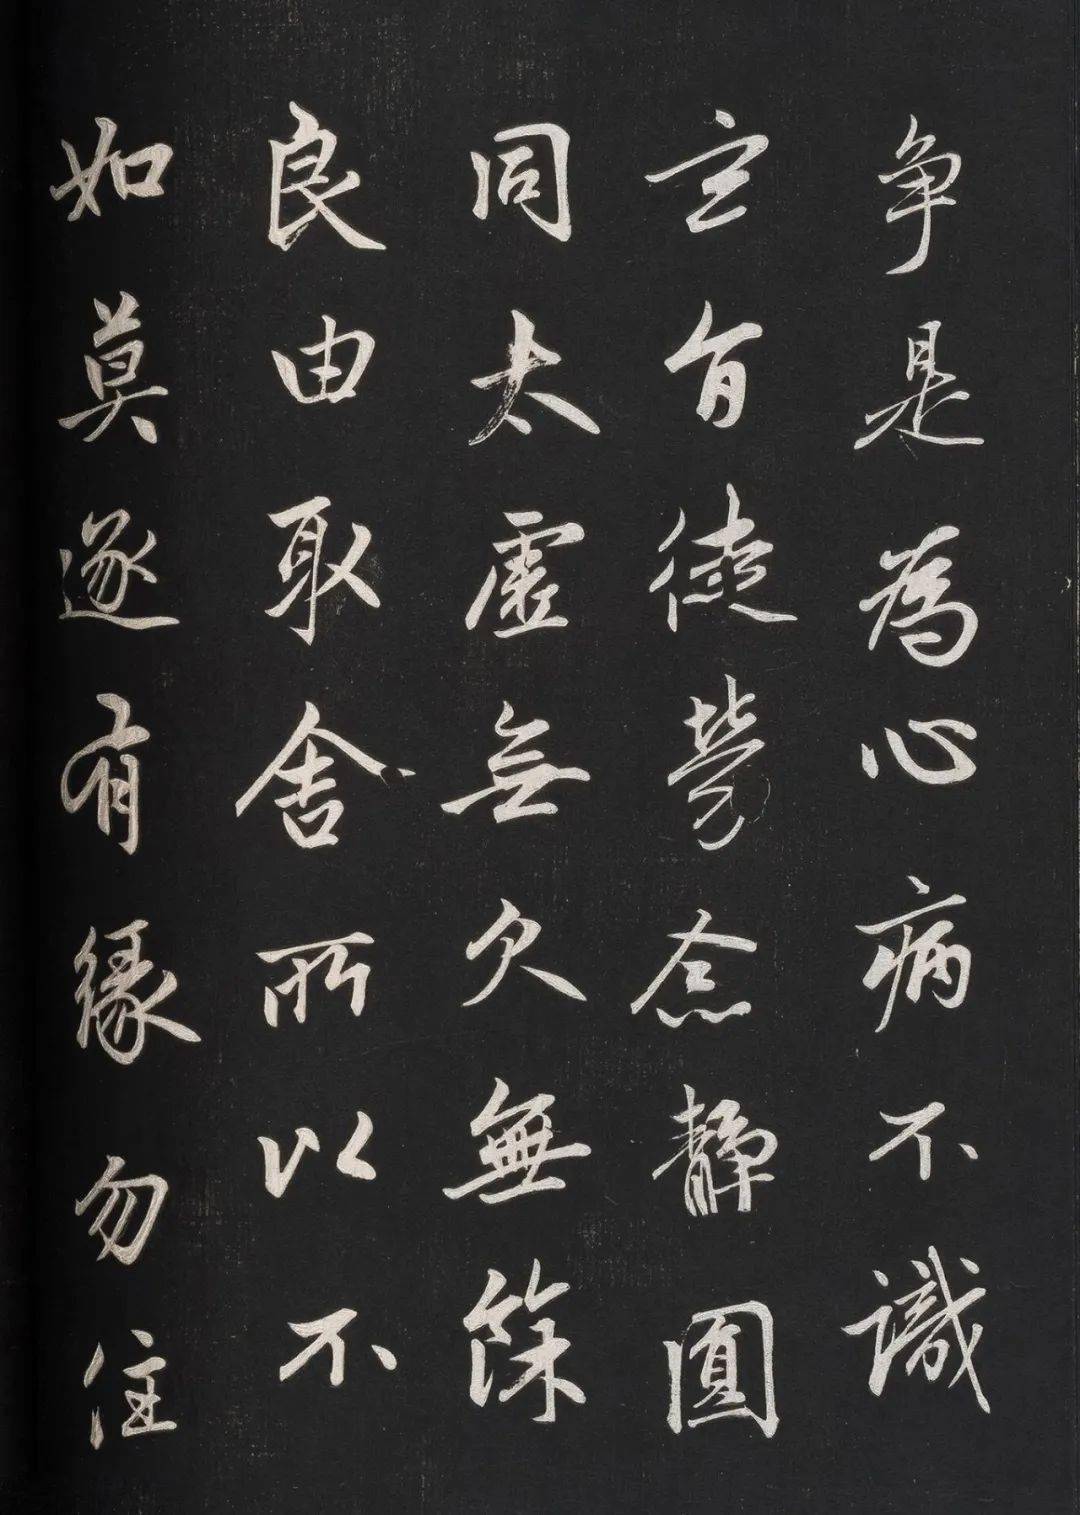 争是為心病不識
玄旨徒勞念静圓
同太虚無欠無餘
良由取舍所以不
如莫遂有緣勿住